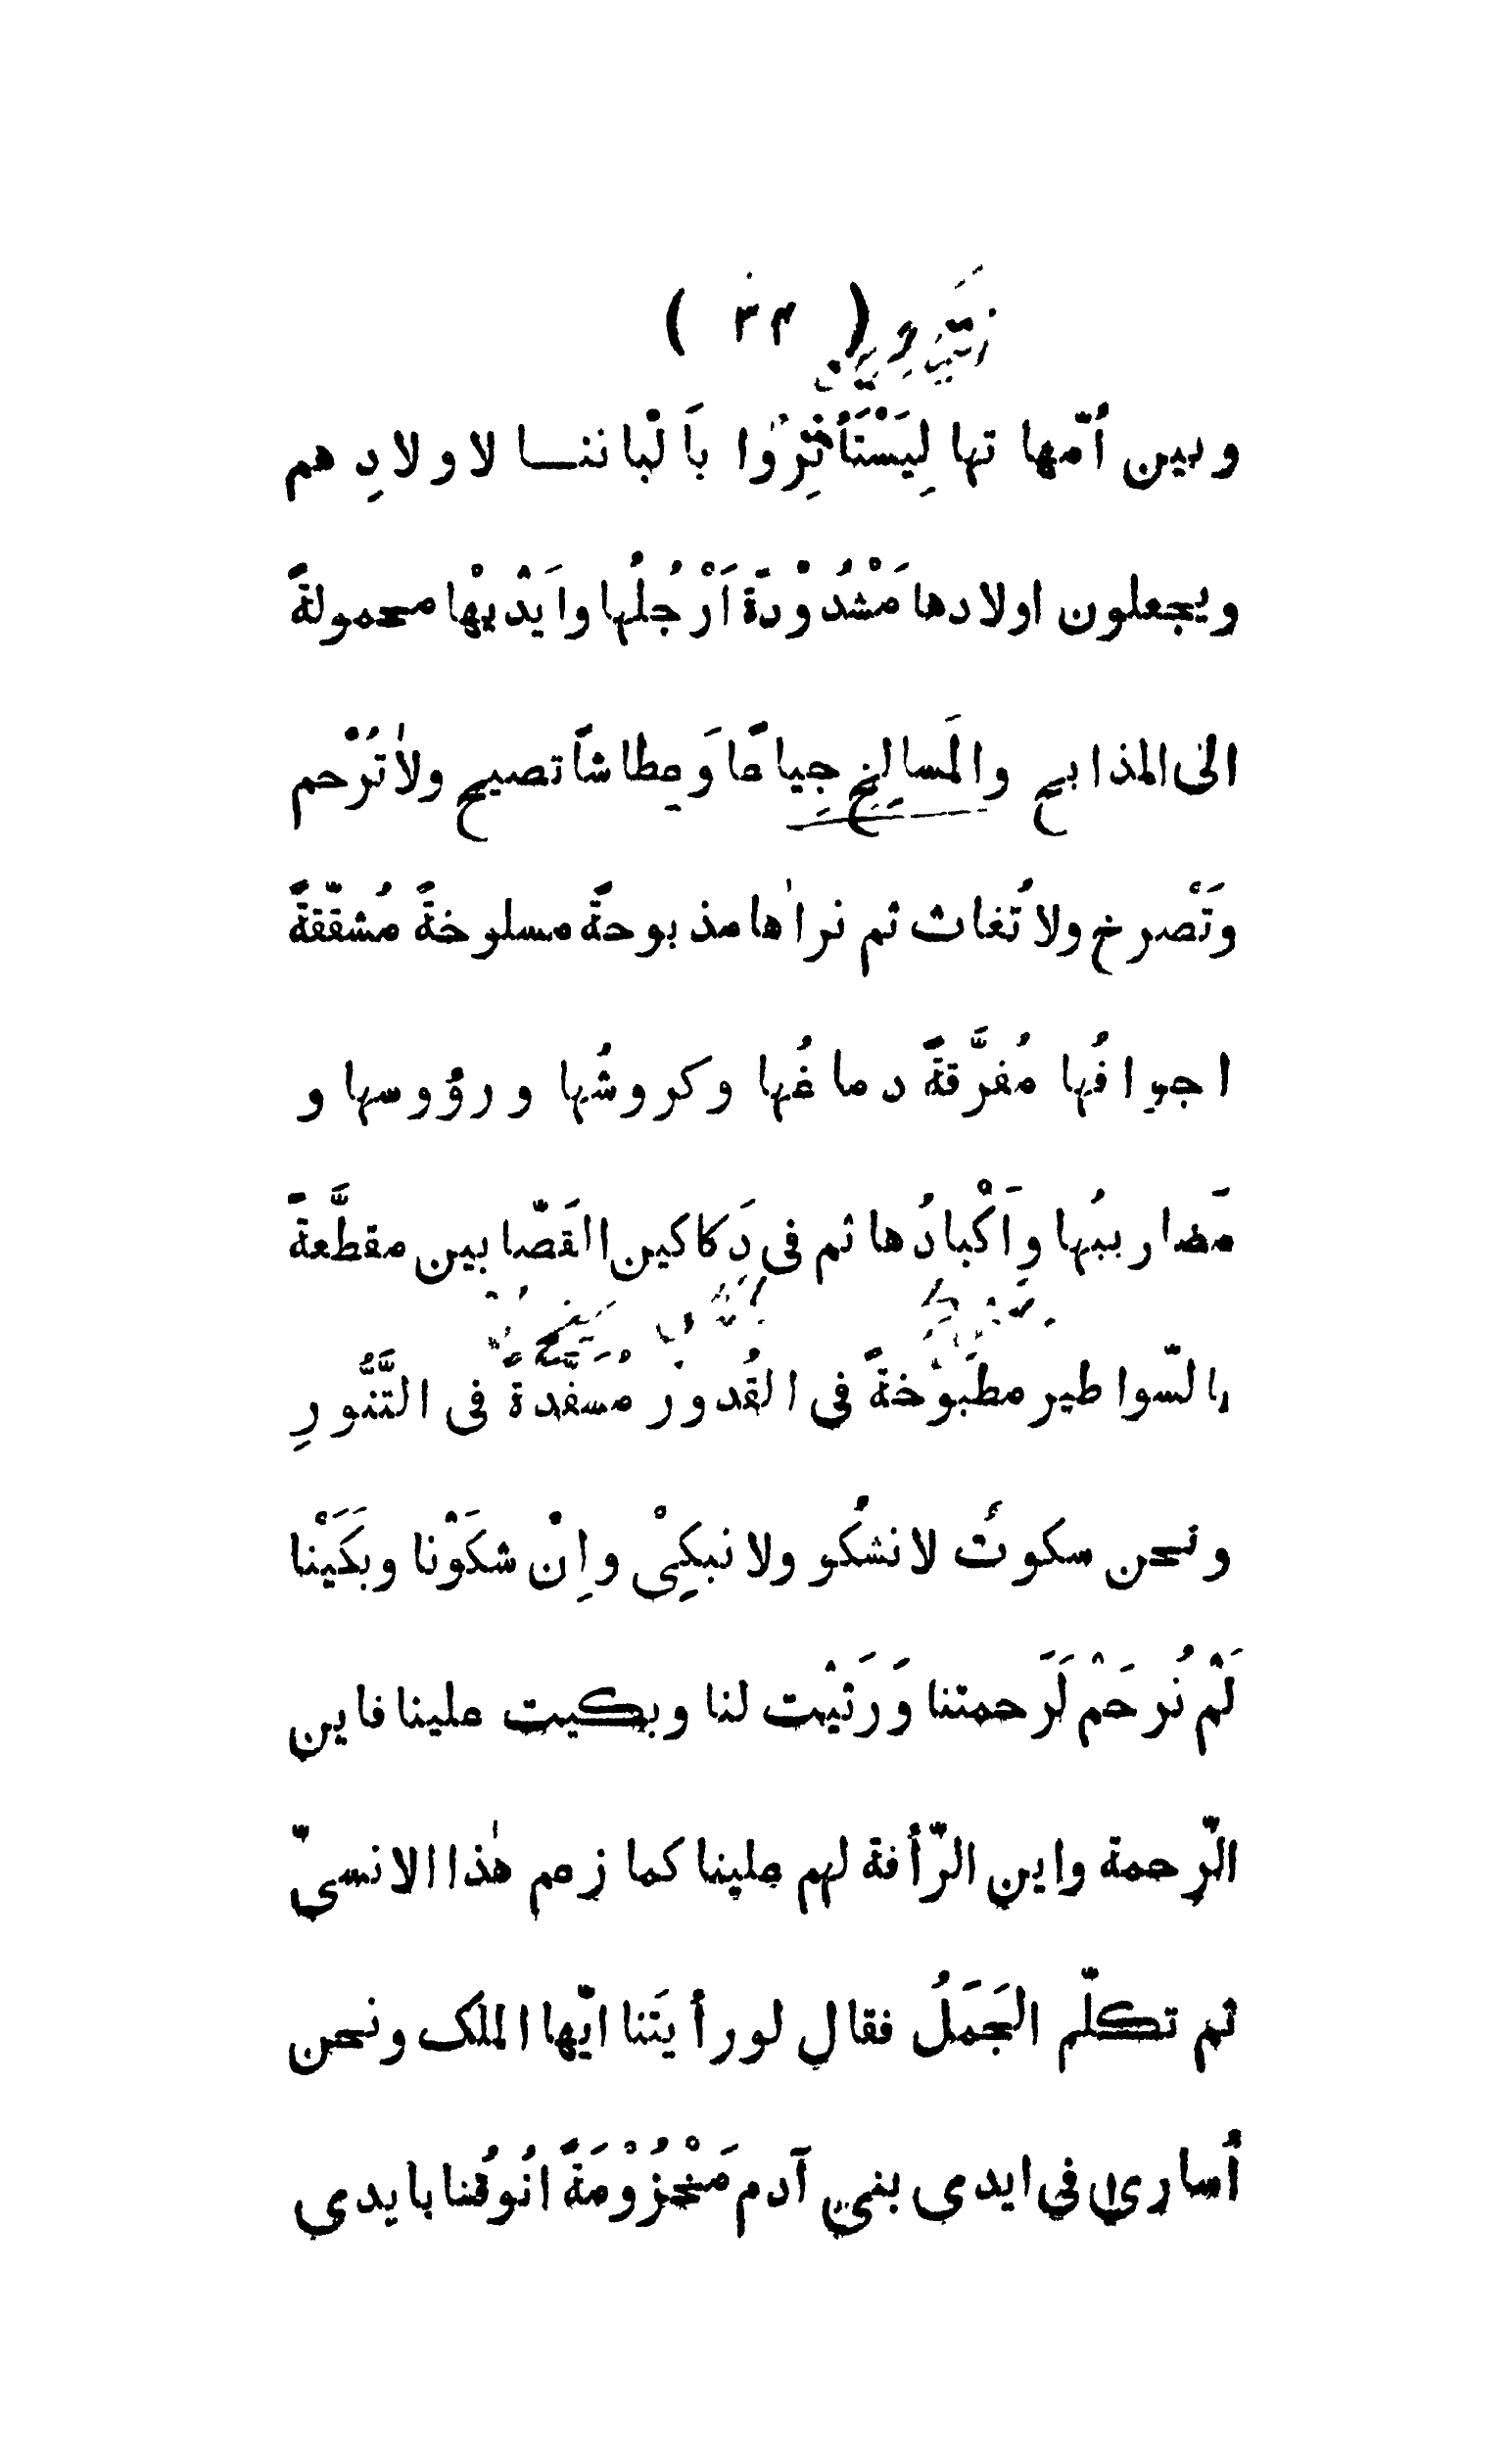 ( ٣٤ )
وبين أمّهاتها لِيَسْتَأثِرُوا بأَلْباننا لاولادِهم
ويجعلون اولادها مَشْدُوْدَةً اَرْجُلُها واَيْديْها محمولةً
الى المذابح والمَسالِخ جِياعًا وَعِطاشًا تصيح ولاٰ تُرْحم
وتَصْرخ ولا تُغاث ثم نراٰها مذبوحةً مسلوخةً مُشقّقةً
اجوافُها مُفرَّقةً دماغُها وكروشُها ورؤوسها و
مَصاريبُها واَكْبادُها ثم فى دَكاكين القَصّابين مقطَّعةً
بالسّواطير مطبَوْخةً فى القُدور مُسَفَّدةً فى التَّنُّورِ
ونحن سكوتٌ لا نشكُو ولا نبكِىْ واِنْ شكَوْنا وبكَيْنا
لَمْ نُرحَمْ لَرَحمتنا وَرَثَيْت لنا وبكيت علينا فاين
الرّحمة واين الرّأفة لهم علينا كما زعم هٰذا الانسىّ
ثم تكلّم الجَمَلُ فقال لو رأيتَنا ايّها الملك ونحن
أسارىٰ فى ايدى بنى آدم مَخْزُوْمَةً انُوفُنا بايدى